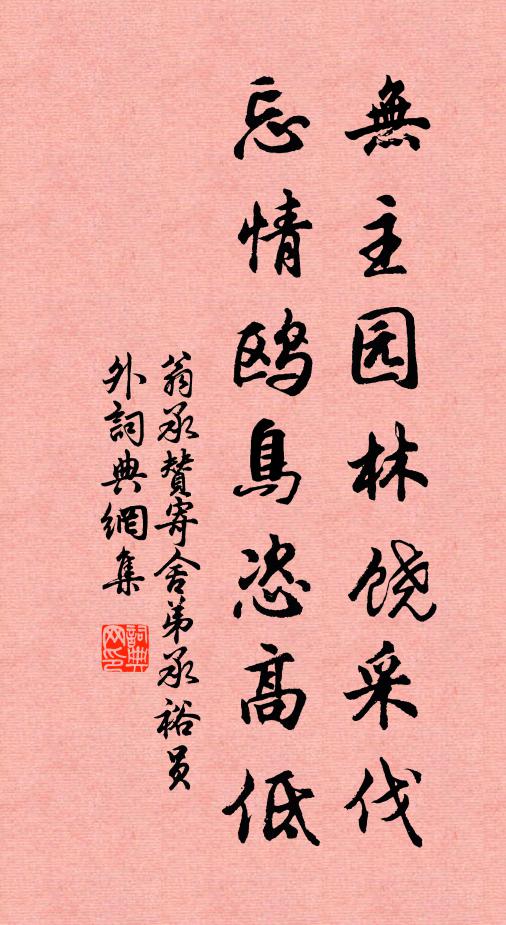 無主园林饶采伐
忘情鸥鳥恣高低
翁承賛寄舍弟承裕员
外詞典網集
詞典
网印